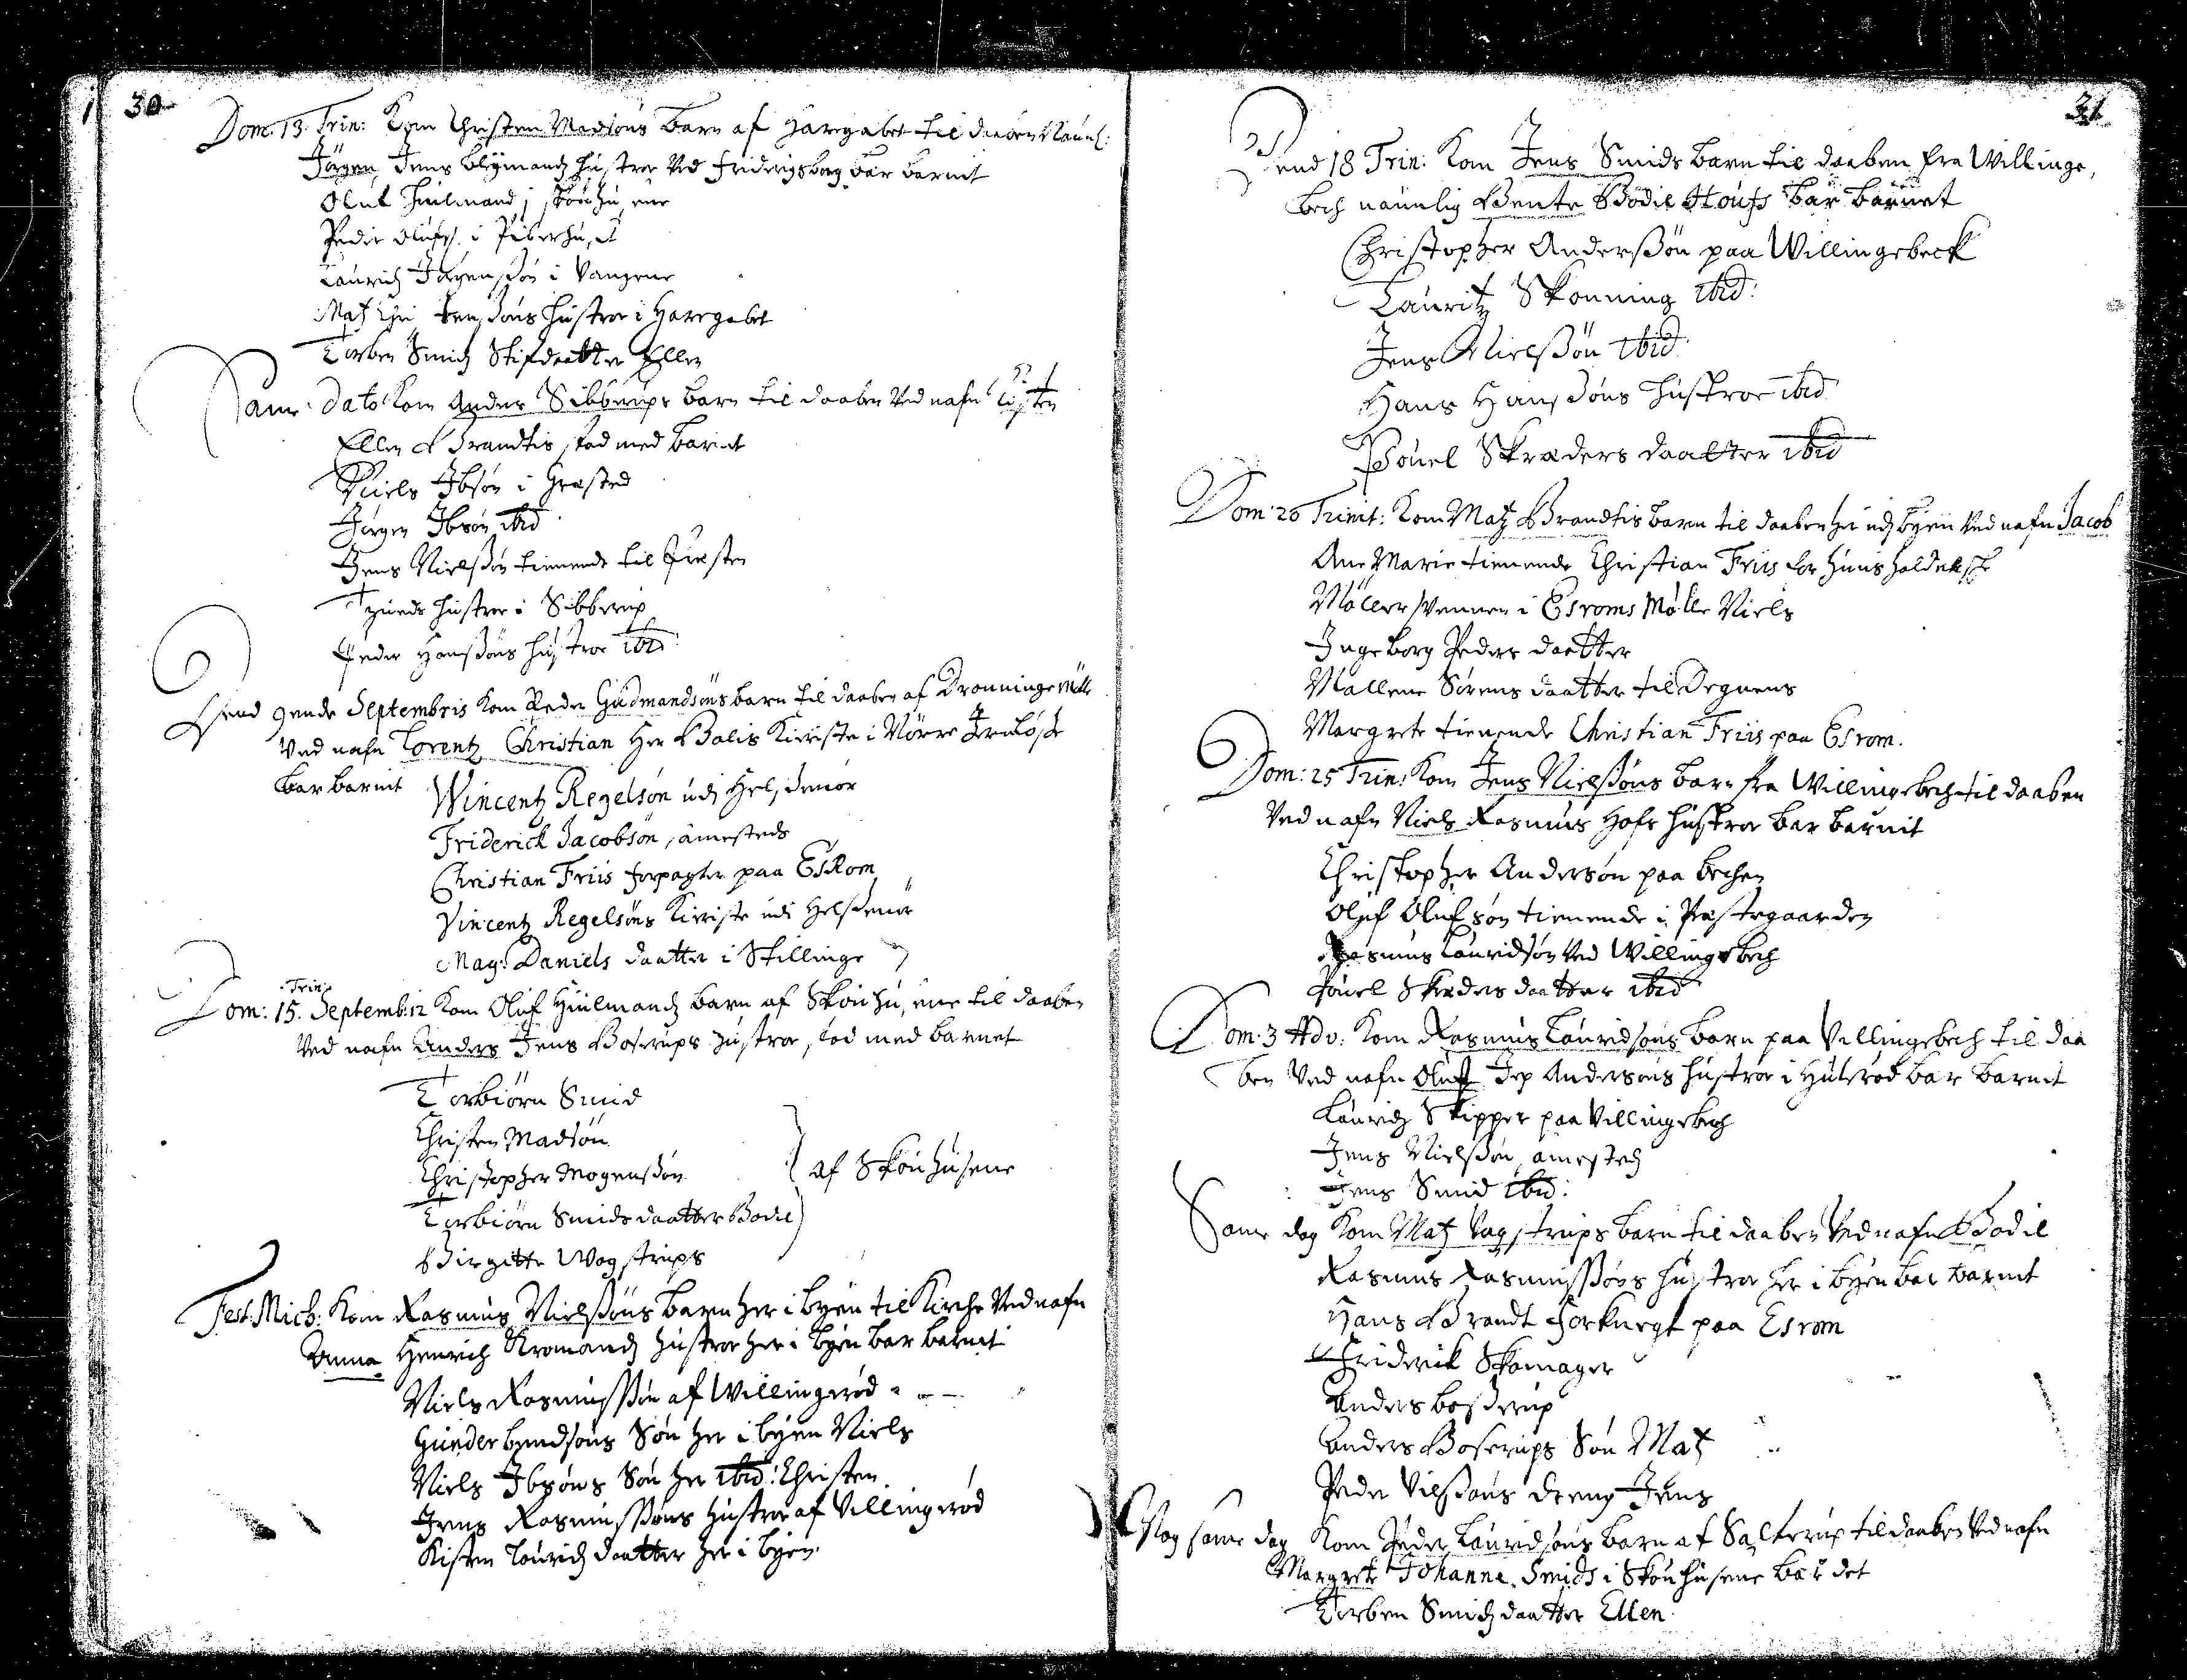 30
Dom. 13. Trin: Kom Christen Madsöns barn af Haregabet til daaben Naunl:
Jörgen, Jens Blÿmandz hustroe Ved Friderigsborg bar barnit
Oluf Hiulmand j Skouhusene
Peder Olufs. i Piberhuset
Lauridz Jörgenssön i Vangene
Matz Jensöns hustroe i Haregabet
Torben Smidz Stifdaatter Ellen
Same dato kom Anders Sibberups barn til daaben Ved nafn Kisten
Ellen Brandtis stod med barnit
Niels Ibsøn i Græsted
Jürgen Ibsøn ibid
Jens Nielssön tienende til Præsten
hustroe i Sibberup
Peder Hanssöns hustroe ibid
Dend 9ende Septembris kom Peder Gudmandsöns barn til daaben af Dronninge Mölle
Ved nafn Lorentz Christian Her Bolis Kieriste i Nörre Jernløse
bar barnit
Wincentz Regelsøn udj Helsenör
Friderich Jacobsön samesteds
Christian Friis forpagter paa EsRom
Vincentz Regelsöns Kieriste udi Helsenör
Mag: Daniels daatter i Stillinge
Trin.
Dom: 15. Septemb: 12 kom Oluf Hiulmandz barn af Skouhusene til daaben
Ved nafn Anders Jens Boserups hustroe stod med barnet
Torbiörn Smid
Christen Madsön
Christopher Mogenssön
af Skouhusene
Torbiörn Smids daatter Bodil
Birgitte Wogstrups
Fest. Mich: kom Rasmus Nielssöns barn her i byen til Kirche Ved nafn
Anna Henrich Kromandz hustroe her i byen bar barnit
Niels Rasmussön af Willingeröd
Gunder Bendsöns Sön her i byen Niels
Niels Ibsöns Sön her ibid: Christen
Jens Rasmussöns hustroe af Villingeröd
Kisten Lauridz daatter her i byen
31
Dend 18 Trin: kom Jens Smids barn til daaben fra Willinge,
bech naunlig Bente Bodil Houfs bar barnet
Christopher Anderssön paa Willingebeck
Lauritz Skonning ibid:
Jens Nielssön ibid
Hans Hansöns hustroe ibid
Pouel Skræders daatter ibid
Dom: 20 Trinit: kom Matz Brandtis barn til daaben her udj byen Ved nafn Jacob
Ane Marie tienende Christian Friis for huusholderske
Möllersvennen i Esroms Mølle Niels
Ingeborg Peders daatter
Mallene Sörens daatter til Degnens
Margrete tienende Christian Friis paa Esrom.
Dom: 25 Trin: kom Jens Nielssöns barn fra Willingebech til daaben
Ved nafn Niels Rasmus Hofs hustroe bar barnit
Christopher Andersön paa bechen
Oluf Olufsön tienende i Præstegaarden
Rasmus Lauridsön Ved Willingebech
Pouel Skræders daatter ibid
Dom: 3 Adv: kom Rasmus Lauridsöns barn paa Villingebech til daa
ben Ved nafn Oluf Jep Andersøns hustroe i Hulerød bar barnit
Lauridz Skipper paa Villingebech
Jens Nielssön samestedz
Jens Smid ibid:
Same dag kom Matz Vagstrups barn til daaben Ved nafn Bodil
Rasmus Rasmussöns hustroe her i byen bar barnit
Hans Brandt Forknegt paa Esrom
Friderik Skomager
Anders Boserup
Anders Boserups Sön Matz
Peder Nilssöns dreng Jens
Nog same dag kom Peder Lauridsöns barn af Salterup til daaben Ved nafn
Margrete Johanne Smids i Skouhusene bar det
Torben Smidz daatter Ellen